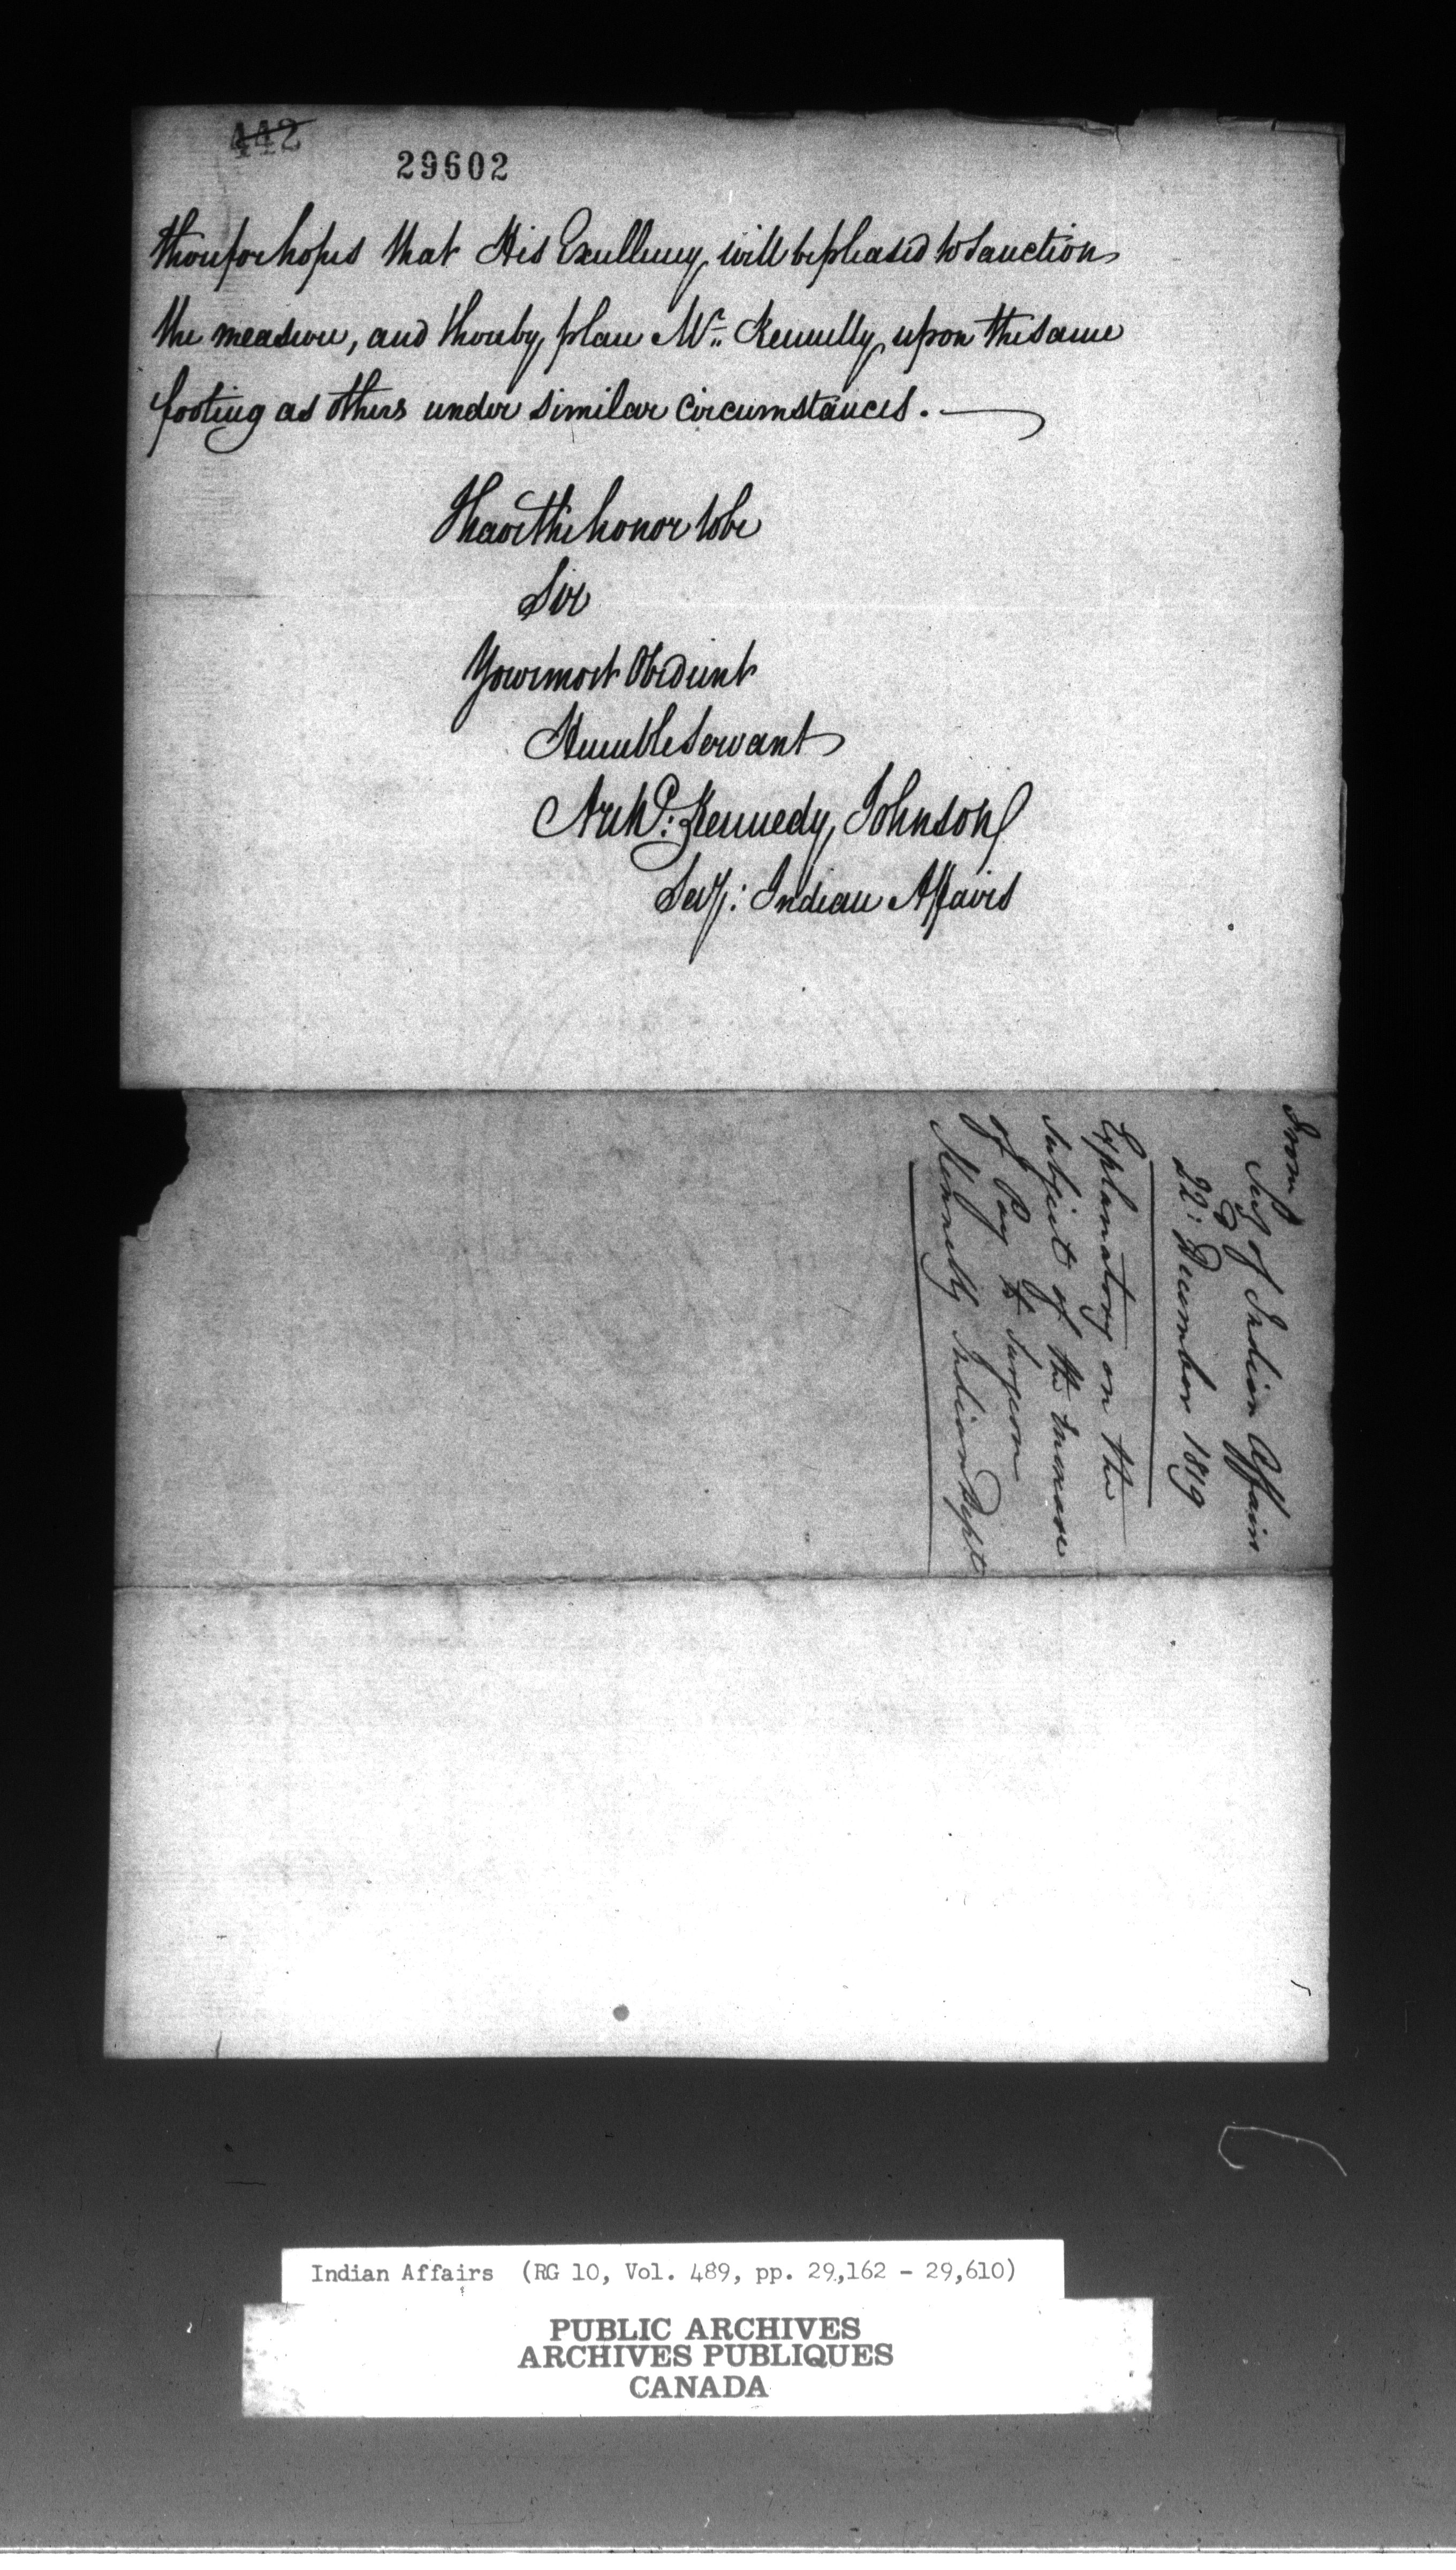 442
29602
therefore hopes that His Excellency will be pleased to sanction
the measure, and thereby place Mr. Kennelly upon the same
footing as others under similar circumstances.
I have the honor to be
Sir
Your most Obedient
Humble Servant
Archd: Kennedy Johnson
Secy: Indian Affairs
From
Secy of Indian Affairs
22d: December 1819
Explanatory on the
subject of the Increase
of Pay to Surgeon
Kennelly Indian Dept
Indian Affairs (RG 10, Vol. 489, pp. 29,162 - 29,610)
PUBLIC ARCHIVES
ARCHIVES PUBLIQUES
CANADA